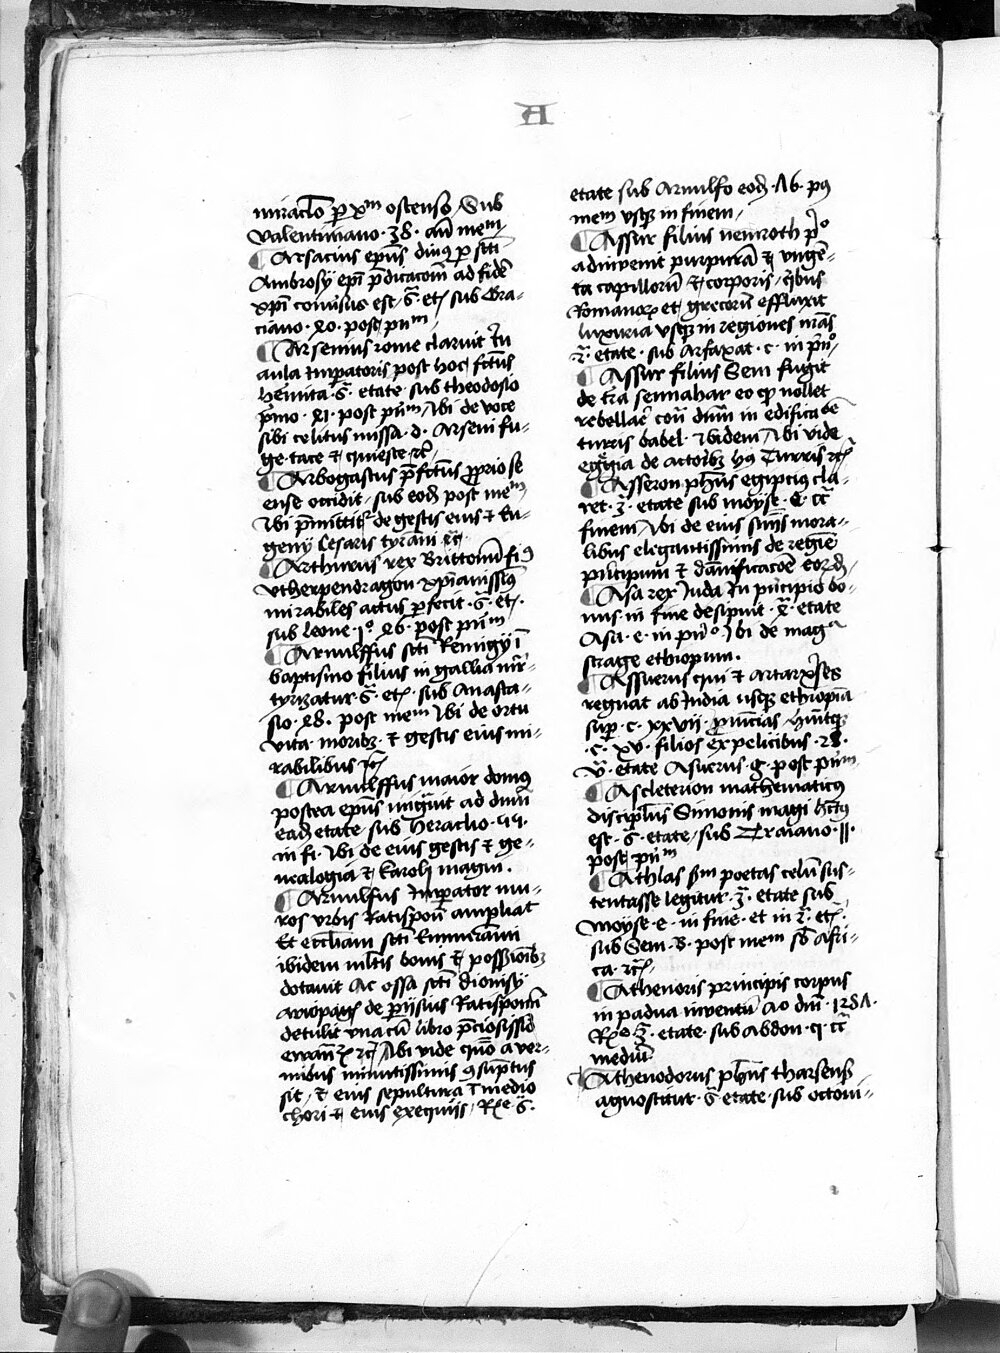 A
miraclo p xpm ostenso Sub
Valentiniano · 38 · an mem
Arsacius epus diuq p scti
Ambrosy epi pdicacoem ad fide
xpi conuisus est · 6 · et · sub Gra-
ciano · 20 · post pn m
Arsenius rome claruit In
aula Imperatoris post hoc fctus
hemita · 6 · etate sub theodosio
pmo · 21 · post pn m Vbi de voce
sibi celitus missa · d · Arseni fu-
ge tace et quiesce rc
Arbogastus pfctus pprio se
ense occidit sub eod post me m
Vbi pmittit de gestis eius et Eu-
geny Cesaris tyrani rc
Arthurus rex Brittonu fi9
vtherpendragon xpianissi9
mirabiles actus pfecit · 6 · et ·
sub leone · 1o · 26 · post pn m
Arnulffus scti Remigy i
baptismo filius in gallia mr-
tyrizatur · 6 · et · sub Anasta-
sio · 28 · post mem Vbi de ortu
vita morib3 et gestis eius mi-
rabilibus rc
Arnulffus maior domus
postea epus migrauit ad dnm
ead etate sub heraclio · 44 ·
in fi · Vbi de eius gestis et ge-
nealogia et karoli magni ·
Arnulfus Imperator mu-
ros vrbis Ratispon ampliat
Et eccliam scti Emmerami
ibidem mltis bonis et possioib3
dotauit Ac ossa scti dionisy
ariopagite de prisius Ratisponam
detulit vna cu libro pciosissio
ewan rc Vbi vide quo a ver-
mibus minutissimis 9suptus
sit · et eius sepultura i medio
chori et eius exequiis · Rxe · 6 ·
etate sub Arnulfo eod · 16 · p9
mem vsq3 in finem
Assur filius nemroth po
adinuenit purpura et vngen-
ta capilloru et corporis · qibus
Romanor et grecoru effluxit
luxuria vsq3 in regiones nras
2 · etate · sub Arfaxat · c · in pno
Assur filius Sem fugit
de tra sennahar eo qp nollet
rebellare con dnm in edificace
turris babel · Ibidem Vbi vide
egregia de actorib3 h9 Turris rc
Asseron phus egipcius cla-
ret · 3 · etate sub moyse · e · ca
finem Vbi de eius smis mora-
libus elegantissimis de regie
pncipum et daificacoe eord
Asa rex Iuda In pncipio bo-
nus in fine desipuit · 4 · etate
Asa · e · in pno · Vbi de mag a
strage ethiopum ·
Assuerus qui et artarxses
regnat ab India usq3 ethiopia
sup · c · xxvii · puncias hntq3
· c · xv · filios ex pelicibus · 28 ·
v · etate Asuerus · g · post pn m
Ascleterion mathematicus
discipulus Simonis magi hctus
est · 6 · etate sub Traiano · ii ·
post pn m
Athlas sm poetas celu sus-
tentasse legitur · 3 · etate sub
moyse · e · in fine · et in 2 · et ·
sub Sem · B · post mem sb Afri-
ca · rc
Athenoris principis corpus
in padua inuentu Ao dni · 1281 ·
Rxe 3 · etate · sub abdon · q · ca
mediu
Athenodorus phus tharsens
agnoscitur · 6 · etate · sub octoui-